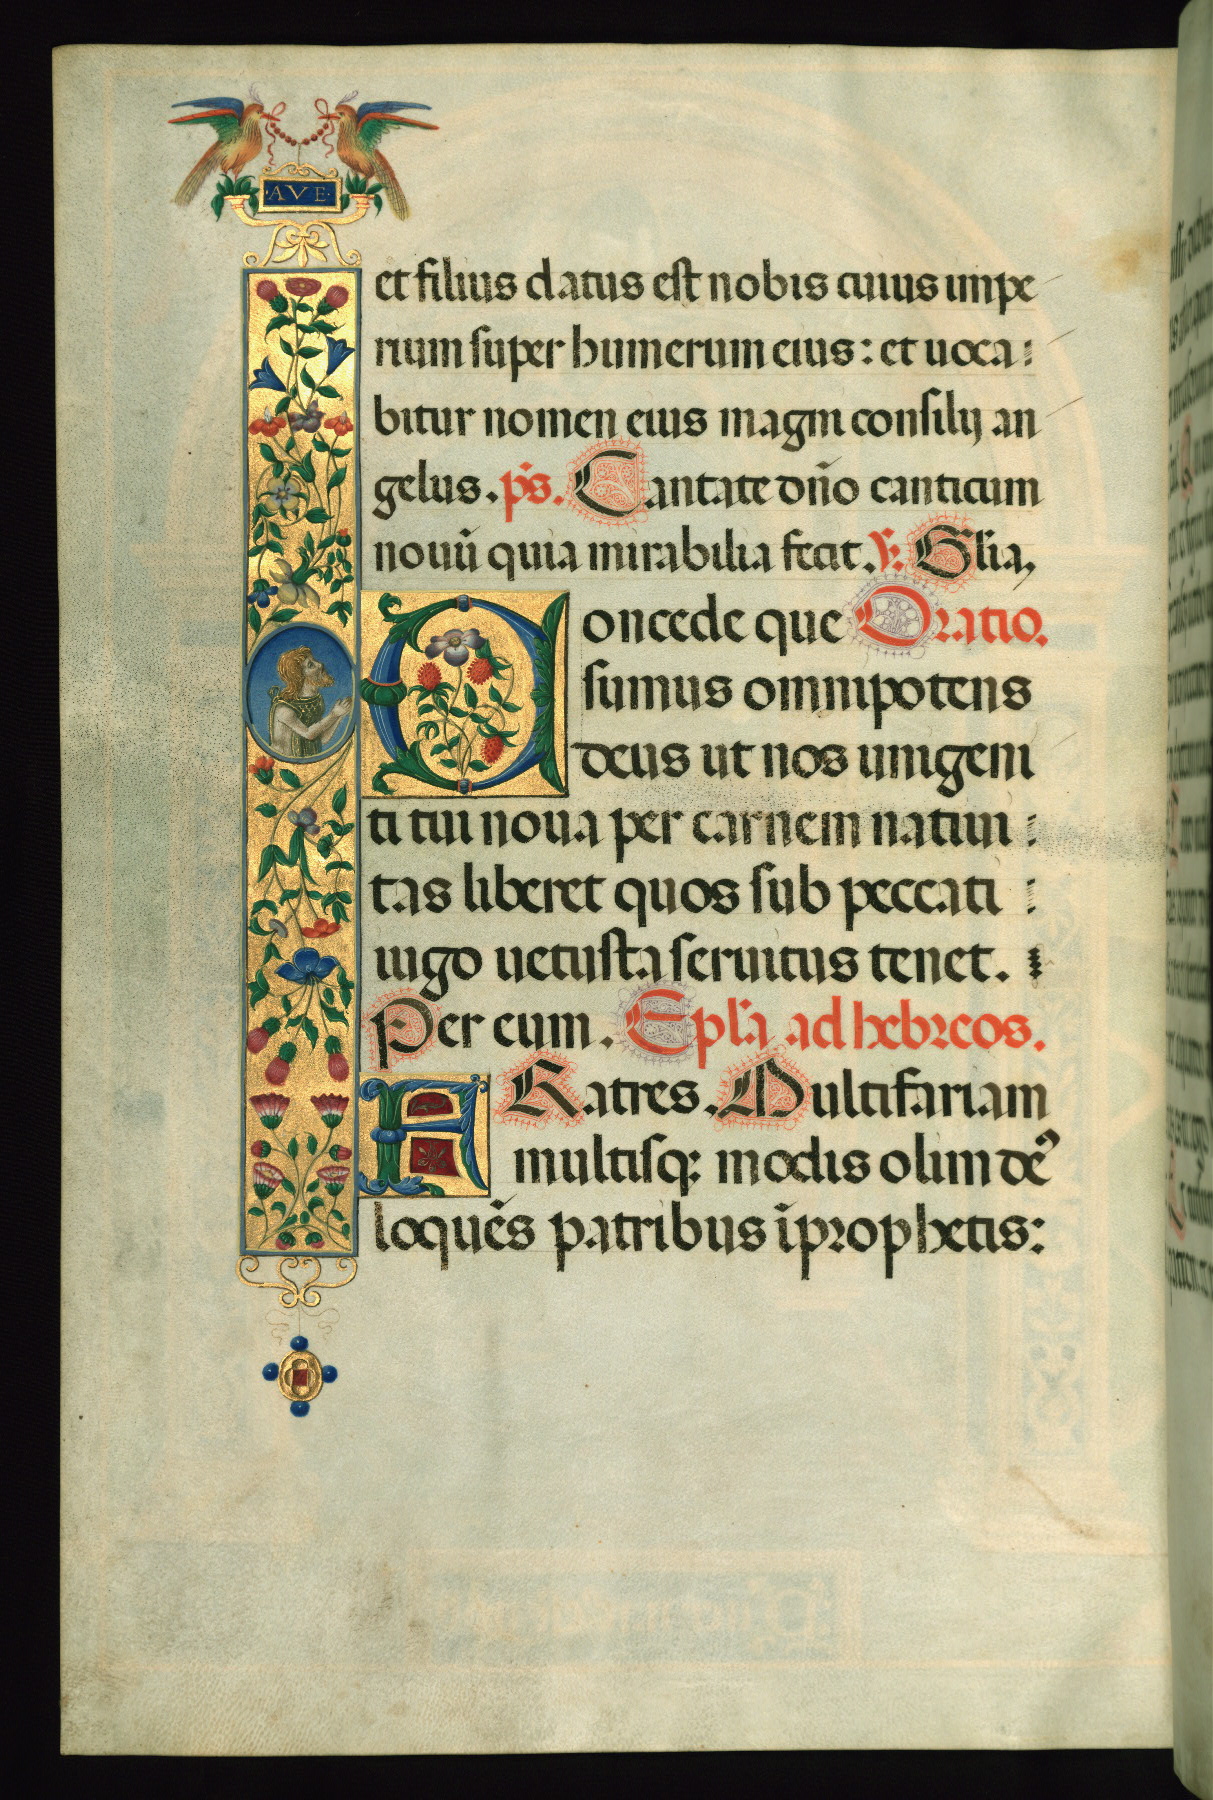 ·AVE·
et filius datus est nobis cuius impe
rium super humerum eius: et uoca:
bitur nomen eius magni consilij an
gelus. ps. Cantate dño canticum
nouũ quia mirabilia fecit. V. Glia,
oncede que Oratio.
sumus omnipotens
deus ut nos unigeni
ti tui noua per carnem natiui:
tas liberet quos sub peccati:
iugo uetusta seruitus tenet.
Per eum. Epla ad hebreos.
FRatres. Multifariam
multisq; modis olim de᾽
loquẽs patribus ĩ prophetis: